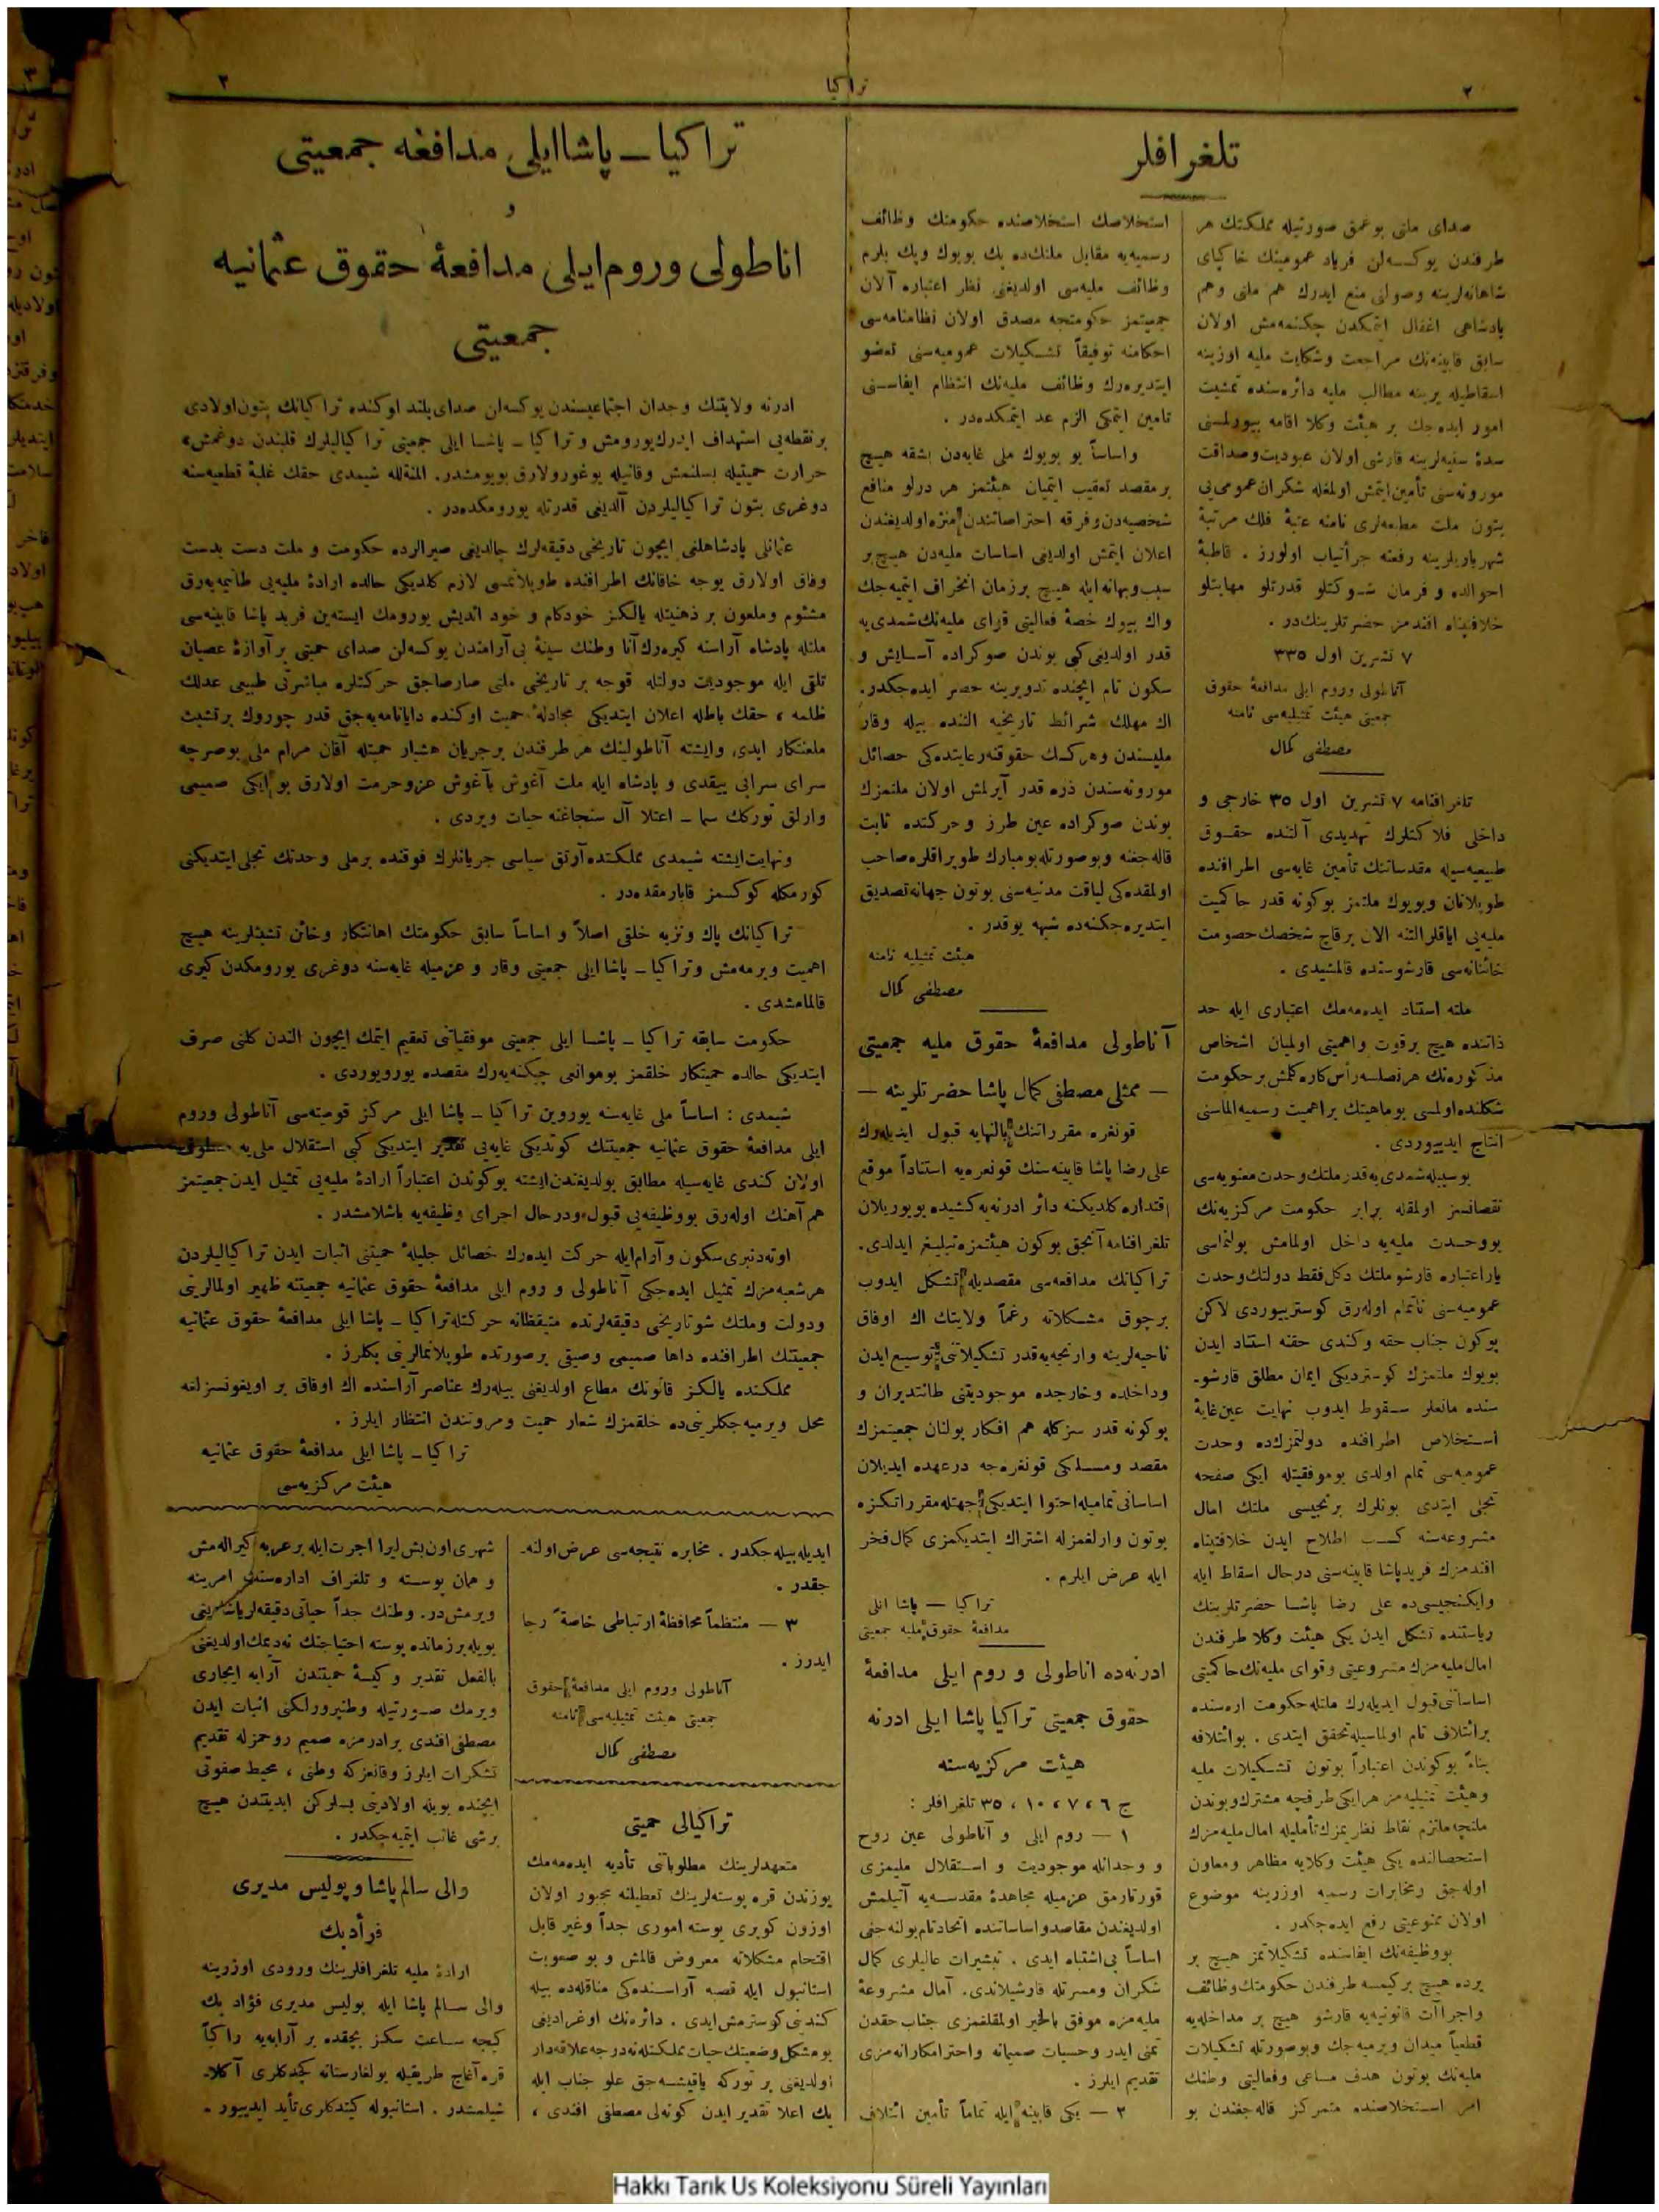 ٢
تراكيا
٣
تلغرافلر
صدای ملی بو عمق صورتيله مملكتك هر
طرفندن يوكسه‌لن فرياد عموميتك خاكپای
شاهانه‌لرينه وصولنی منع ايدرك هم ملتی وهم
پادشاهی اغفال ايتمكدن چكنمه‌مش اولان
سابق قابينه‌نك مراجعت وشكايت مليه اوزرينه
اسقاطيله يرينه مطالب مليه دائره‌سنده تمشيت
امور ايده‌جك بر هيئت وكلا اقامه بيورلمسی
سدهٔ سنيه‌لرينه قارشی اولان عبوديت وصداقت
موروثه‌سنی تأمين ايتمش اولمغله شكران عمومی‌يی
بتون ملت مطيعه‌لری نامنه عتبهٔ فلك مرتبهٔ
شهريارلرينه رفعته جرأتياب اولورز . قاطبهٔ
احوالده و فرمان شوكتلو قدرتلو مهابتلو
خلافپناه افندمز حضرتلرينك در .
٧ تشرين اول ٣٣٥
آناطولی وروم ايلی مدافعهٔ حقوق
جمعيتی هيئت تمثيليه‌سی نامنه
مصطفی كمال
تلغرافنامه ٧ تشرين اول ٣٥ خارجی و
داخلی فلاكتلرك تهديدی آلتنده حقوق
طبيعيه‌سيله مقدساتنك تأمين غايه‌سی اطرافنده
طوپلانان وبويوك ملتمز بوكونه قدر حاكميت
مليه‌يی اياقلر التنه الان برقاچ شخصك خصومت
خائنانه‌سی قارشوسنده قالمشيدی .
ملته استناد ايده‌مه‌مك اعتباری ايله حد
ذاتنده هيچ برقوت واهميتی اولميان اشخاص
مذكوره‌نك هرنصلسه رأس كاره كلمش بر حكومت
شكلنده اولمسی بوماهيتك براهميت رسميه الماسنی
انتاج ايدييوردی .
بوسببله شمدی‌يه قدر ملتك وحدت معنويه‌سی
نقصانسز اولمقله برابر حكومت مركزيه‌نك
بووحدت مليه‌يه داخل اولمامش بولنماسی
يار اعتباره قارشو ملتك دكل فقط دولتك وحدت
عموميه‌سنی ناتمام اوله‌رق كوسترييوردی لاكن
بوكون جناب حقه وكندی حقنه استناد ايدن
بويوك ملتمزك كوسترديكی ايمان مطلق قارشو-
سنده مانعلر سقوط ايدوب نهايت عين غايهٔ
استخلاص اطرافنده دولتمزك‌ده وحدت
عموميه‌سی تمام اولدی بوموفقيتله ايكی صفحه
تجلی ايتدی بونلرك برنجيسی ملتك امال
مشروعه‌سنه كسب اطلاع ايدن خلافتپناه
افندمزك فريد پاشا قابينه‌سنی درحال اسقاط ايله
وايكنجيسی‌ده علی رضا پاشا حضرتلرينك
رياستنده تشكل ايدن يكی هيئت وكلا طرفندن
امال مليه‌مزك مشروعيتی وقوای مليه‌نك حاكميتی
اساساتی قبول ايديله‌رك ملتله حكومت اره‌سنده
برائتلاف تام اولماسيله تحقق ايتدی . بوائتلافه
بناءً بوكوندن اعتباراً بوتون تشكيلات مليه
وهيئت تمثيليه‌مز هرايكی طرفجه مشترك وبوندن
ملتجه ملتزم نقاط نظريمزك تأمليله امال مليه‌مزك
استحصالنده يكی هيئت وكلايه مظاهر ومعاون
اوله‌جق ومخابرات رسميه اوزرينه موضوع
اولان ممنوعيتی رفع ايده‌جكدر .
بووظيفه‌نك ايفاسنده تشكيلاتمز هيچ بر
يرده هيچ بركيمسه طرفندن حكومتك وظائف
واجراآت قانونيه‌يه قارشو هيچ بر مداخله‌يه
قطعياً ميدان ويرميه‌جك وبوصورتله تشكيلات
مليه‌نك بوتون هدف مساعی وفعاليتی وطنك
امر استخلاصنده متمركز قاله‌جغندن بو
استخلاصك استخلاصنده حكومتك وظائف
رسميه‌يه مقابل ملتك‌ده پك بويوك وپك بلزم
وظائف مليه‌سی اولديغنی نظر اعتباره آلان
جمعيتمز حكومتجه مصدق اولان نظامنامه‌سی
احكامنه توفيقاً تشكيلات عموميه‌سنی تعضو
ايتديره‌رك وظائف مليه‌نك انتظام ايفاسنی
تامين ايتمكی الزم عد ايتمكده‌در .
واساساً بو بويوك ملی غايه‌دن بشقه هيچ
برمقصد تعقيب ايتميان هيئتمز هر درلو منافع
شخصيه‌دن وفرقه احتراصاتندن منزه اولديغندن
اعلان ايتمش اولديغی اساسات مليه‌دن هيچ بر
سبب وبهانه ايله هيچ برزمان انحراف ايتميه‌جك
واك بيوك حصهٔ فعاليتی قوای مليه‌نك شمدی‌يه
قدر اولديغی كبی بوندن صوكراده آسايش و
سكون تام ايچنده تدويرينه حصر ايده‌جكدر.
اك مهلك شرائط تاريخيه التنده بيله وقار
مليسندن وهركسك حقوقنه رعايتده‌كی حصائل
موروثه‌سندن ذره قدر آيرلمش اولان ملتمزك
بوندن صوكراده عين طرز وحركتده ثابت
قاله‌جغنه وبوصورتله بومبارك طوپراقلره صاحب
اولمقده‌كی لياقت مدنيه‌سنی بوتون جهانه تصديق
ايتديره‌جكنه‌ده شبهه يوقدر .
هيئت تمثيليه نامنه
مصطفی كمال
آناطولی مدافعهٔ حقوق مليه جمعيتی
— ممثلی مصطفی كمال پاشا حضرتلرينه —
قونغره مقرراتنك بالنهايه قبول ايديله‌رك
علی رضا پاشا قابينه‌سنك قونغره‌يه استناداً موقع
اقتداره كلديكنه دائر ادرنه‌يه كشيده بويوريلان
تلغرافنامه آنجق بوكون هيئتمزه تبليغ ايدلدی.
تراكيانك مدافعه‌سی مقصديله تشكل ايدوب
برچوق مشكلاته رغماً ولايتك اك اوفاق
ناحيه‌لرينه وارنجه‌يه قدر تشكيلاتنی توسيع ايدن
وداخلده وخارجده موجوديتنی طانتديران و
بوكونه قدر سزكله هم افكار بولنان جمعيتمزك
مقصد ومسلكی قونغره‌جه درعهده ايديلان
اساساتی تماميله احتوا ايتديكی جهتله مقرراتكزه
بوتون وارلغمزله اشتراك ايتديكمزی كمال فخر
ايله عرض ايلرم .
تراكيا — پاشا ايلی
مدافعهٔ حقوق مليه جمعيتی
ادرنه‌ده اناطولی و روم ايلی مدافعهٔ
حقوق جمعيتی تراكيا پاشا ايلی ادرنه
هيئت مركزيه‌سنه
ج ٦ ، ٧ ، ١٠ ، ٣٥ تلغرافلر :
١ — روم ايلی و آناطولی عين روح
و وجدانله موجوديت و استقلال مليمزی
قورتارمق عزميله مجاهدهٔ مقدسه‌يه آتيلمش
اولديغندن مقاصد واساساتنده اتحاد تام بولنه‌جغی
اساساً بی‌اشتباه ايدی . تبشيرات عاليلری كمال
شكران ومسرتله قارشيلاندی. آمال مشروعهٔ
مليه‌مزه موفق بالخير اولمقلغمزی جناب حقدن
تمنی ايدر وحسيات صميمانه واحترامكارانه‌مزی
تقديم ايلرز .
٢ — يكی قابينه ايله تماماً تأمين ائتلاف
تراكيا — پاشا ايلی مدافعه جمعيتی
و
اناطولی وروم ايلی مدافعهٔ حقوق عثمانيه
جمعيتی
ادرنه ولايتنك وجدان اجتماعيسندن يوكسه‌لن صدای بلند اوكنده تراكيانك بتون اولادی
بر نقطه‌يی استهداف ايدرك يورومش و تراكيا — پاشا ايلی جمعيتی تراكياليلرك قلبندن دوغمش،
حرارت حميتيله بسلنمش وقانيله يوغورولارق بويومشدر. المنةلله شيمدی حقك غلبهٔ قطعيه‌سنه
دوغری بتون تراكياليلردن آلديغی قدرتله يورومكده‌در .
عثمانلی پادشاهلغی ايچون تاريخی دقيقه‌لرك چالديغی صيرالرده حكومت و ملت دست بدست
وفاق اولارق يوجه خاقانك اطرافنده طوپلانمسی لازم كلديكی حالده ارادهٔ مليه‌يی طانيمه‌يه‌رق
مشئوم وملعون بر ذهنيتله يالكز خودكام و خود انديش يورومك ايسته‌ين فريد پاشا قابينه‌سی
ملتله پادشاه آراسنه كيره‌رك آنا وطنك سينهٔ بی‌آرامندن يوكسه‌لن صدای حميتی بر آوازهٔ عصيان
تلقی ايله موجوديت دولتله قوجه بر تاريخی ملی صارصاجق حركتلره مباشرتی طبيعی عدلك
ظلمه ، حقك باطله اعلان ايتديكی مجادلهٔ حميت اوكنده دايانامه‌يه‌جق قدر چوروك بر تشبث
ملعنتكار ايدی وايشته آناطولينك هر طرفندن بر جريان هشيار حميتله آقان مرام ملی بو صرچه
سرای سرابی ييقدی و پادشاه ايله ملت آغوش بآغوش عز وحرمت اولارق بو ايكی صميمی
وارلق توركك سما — اعتلا آل سنجاغنه حيات ويردی .
ونهايت ايشته شيمدی مملكتده آرتق سياسی جريانلرك فوقنده بر ملی وحدتك تجلی ايتديكنی
كورمكله كوكسمز قابارمقده‌در .
تراكيانك پاك ونزيه خلقی اصلاً و اساساً سابق حكومتك اهانتكار وخائن تشبثلرينه هيچ
اهميت ويرمه‌مش و تراكيا — پاشا ايلی جمعيتی وقار و عزميله غايه‌سنه دوغری يورومكدن كيری
قالمامشدی .
حكومت سابقه تراكيا — پاشا ايلی جمعيتی موفقياتنی تعقيم ايتمك ايچون الندن كلنی صرف
ايتديكی حالده حميتكار خلقمز بوموانعی چيكنه‌يه‌رك مقصده يورويوردی .
شيمدی : اساساً ملی غايه‌سنه يوروين تراكيا — پاشا ايلی مركز قوميته‌سی آناطولی وروم
ايلی مدافعهٔ حقوق عثمانيه جمعيتنك كوتديكی غايه‌يی تقدير ايتديكی كبی استقلال ملی‌يه معطوف
اولان كندی غايه‌سيله مطابق بولديغندن ايشته بوكوندن اعتباراً ارادهٔ مليه‌يی تمثيل ايدن جمعيتمز
هم آهنك اوله‌رق بووظيفه‌يی قبول ودرحال اجرای وظيفه‌يه باشلامشدر .
اوته‌دنبری سكون و آرام ايله حركت ايده‌رك خصائل جليلهٔ حميتنی اثبات ايدن تراكياليلردن
هر شعبه‌مزك تمثيل ايده‌جكی آناطولی و روم ايلی مدافعهٔ حقوق عثمانيه جمعيتنه ظهير اولمالرينی
ودولت وملتك شو تاريخی دقيقه‌لرنده متيقظانه حركتله تراكيا — پاشا ايلی مدافعهٔ حقوق عثمانيه
جمعيتنك اطرافنده داها صميمی وصيقی بر صورتده طوپلانمالرينی بكلرز .
مملكتده يالكز قانونك مطاع اولديغنی بيله‌رك عناصر آراسنده اك اوفاق بر اويغونسزلغه
محل ويرميه‌جكلرينی‌ده خلقمزك شعار حميت ومروتندن انتظار ايلرز .
تراكيا — پاشا ايلی مدافعهٔ حقوق عثمانيه
هيئت مركزيه‌سی
ايديله‌بيله‌جكدر . مخابره نتيجه‌سی عرض اولنه-
جقدر .
٣ — منتظماً محافظهٔ ارتباطی خاصةً رجا
ايدرز .
آناطولی وروم ايلی مدافعهٔ حقوق
جمعيتی هيئت تمثيليه‌سی نامنه
مصطفی كمال
تراكيالی حميتی
متعهدلرينك مطلوباتنی تأديه ايده‌مه‌مك
يوزندن قره پوسته‌لرينك تعطيلنه مجبور اولان
اوزون كوپری پوسته اموری جداً وغير قابل
اقتحام مشكلاته معروض قالمش و بو صعوبت
استانبول ايله قصبه آراسنده‌كی مناقله‌ده بيله
كنديني كوسترمش ايدی . دائره‌نك اوغراديغی
بو مشكل وضعيتك حيات مملكتله نه درجه علاقه‌دار
اولديغنی بر توركه ياقيشه‌جق علو جناب ايله
پك اعلا تقدير ايدن كوته‌لی مصطفی افندی ،
شهری اون بش ليرا اجرت ايله بر عربه كيرالامش
و همان پوسته و تلغراف اداره‌سنك امرينه
ويرمش‌در. وطنك جداً حياتی دقيقه‌لر ياشاديغی
بويله بر زمانده پوسته احتياجنك نه‌ديمك اولديغنی
بالفعل تقدير و كيسهٔ حميتندن آرابه ايجاری
ويرمك صورتيله وطنپرورلكنی اثبات ايدن
مصطفی افندی برادرمزه صميم روحمزله تقديم
تشكرات ايلرز وقانعزكه وطنی ، محيط صفوتی
ايچنده بويله اولادينی بسلركن ابديتدن هيچ
بر شی غائب ايتميه‌جكدر .
والی سالم پاشا و پوليس مديری
فوأد بك
ارادهٔ مليه تلغرافلرينك ورودی اوزرينه
والی سالم پاشا ايله پوليس مديری فؤاد بك
كيجه ساعت سكز بچقده بر آرابه‌يه راكباً
قره آغاج طريقيله بولغارستانه كچدكلری آكلا-
شيلمشدر . استانبوله كيتدكلری تأيد ايدييور .
Hakkı Tarık Us Koleksiyonu Süreli Yayınları